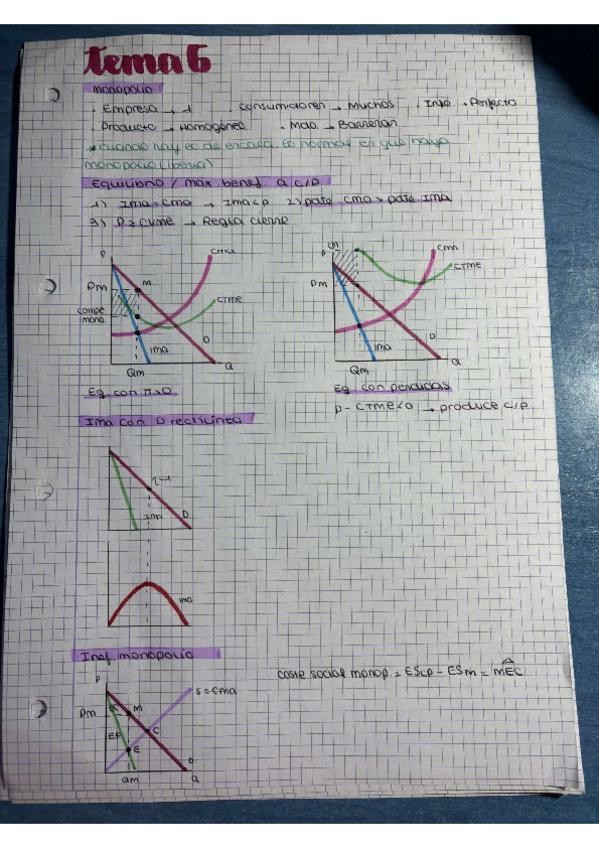 tema 6
monopolio
· Empresa → 1 · consumidores → muchos · Info. → Perfecta
· Producto → Homogéneo · Mdo. → Barreras
* cuando hay ec de escala. Es normal en que haya
monopolio (Iberia)
Equilibrio / max. benef. a c/p
1) Ima = cma → Ima < p 2) pdte cma > pdte Ima
3) P ≥ CVme → Regla cierre
P
Cma
Pm
M
CTme
D
Ima
Q
Qm
P
Cma
CTme
Pm
D
Ima
Q
Qm
Eq. con π>0
Eq. con perdidas
p - CTme<0 → produce c/p
Ima con D rectilínea
D
Ima
Inef. monopolio
coste social monop = EScp - ESm = MEC
P
S = Cma
Pm
M
C
EP
E
D
Qm
Q